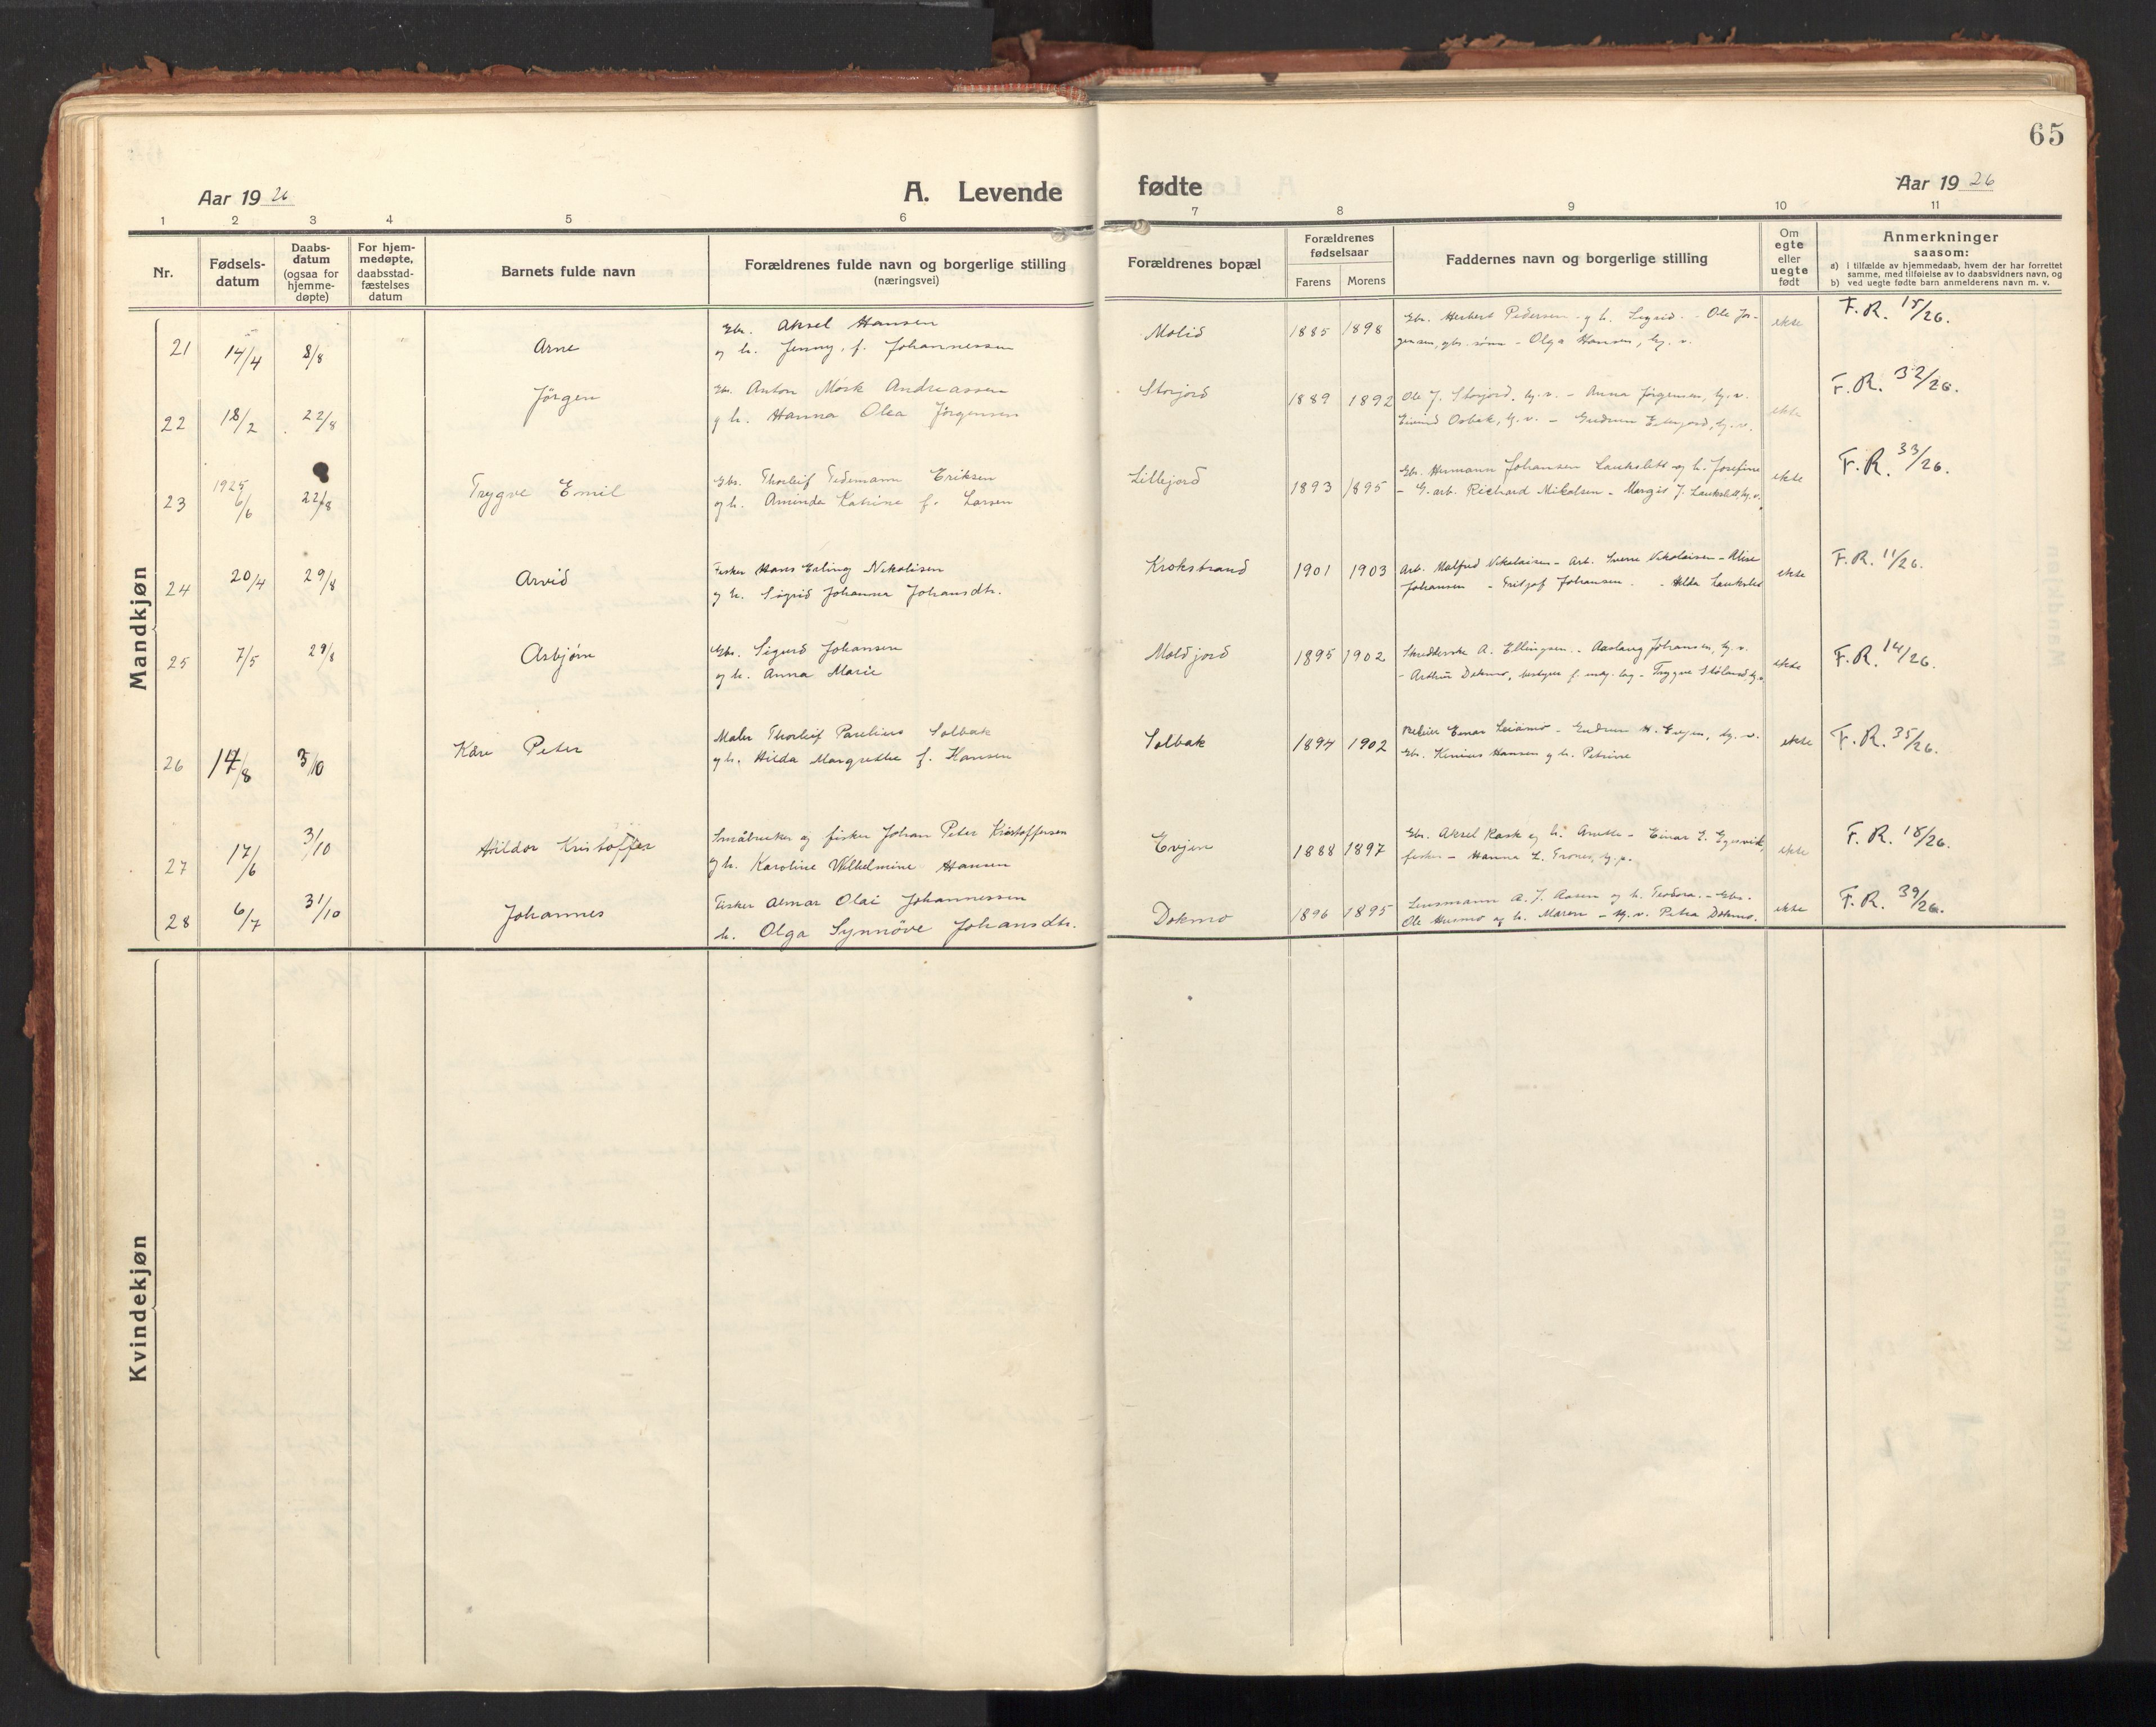 65
Aar 1926
A. Levende fødte
Aar 1926
1 2 3 4 5 6 7 8 9 10 11
Nr.
Fødsels-
datum
Daabs-
datum
(ogsaa for
hjemme-
døpte)
For hjem-
medøpte,
daabsstad-
fæstelses
datum
Barnets fulde navn
Forældrenes fulde navn og borgerlige stilling
(næringsvei)
Forældrenes bopæl
Forældrenes
fødselsaar
Farens Morens
Faddernes navn og borgerlige stilling
Om
egte
eller
uegte
født
Anmerkninger
saasom:
a) i tilfælde av hjemmedaab, hvem der har forrettet
samme, med tilføielse av to daabsvidners navn, og
b) ved uegte fødte barn anmelderens navn m. v.
Mandkjøn
21 14/4 8/8 Arne
Gbr. Aksel Hansen
og h. Jenny, f. Johannessen
Molid 1885 1898
Gbr. Herbert Pedersen og h. Sigrid - Ole Jør-
gensen, gbr. sønn - Olga Hansen, ug. v.
ekte F.R. 15/26.
22 18/2 22/8 Jørgen
Gbr. Anton Mørk Andreassen
og h. Hanna Olea Jørgensen
Storjord 1889 1892
Ole J. Storjord, ug. v. - Anna Jørgensen, ug. v.
Eivind Osbak, ug. v. - Gudrun ug. v.
ekte F.R. 32/26.
23 1925 6/6 22/8 Trygve Emil
Gbr. Thorleif Tidemann Eriksen
og h. Aminda Katrine f. Larsen
Lillejord 1893 1895
Gbr. Hermann Johansen Laukslett og h. Josefine
- G. arb. Richard Mikalsen - Margit J. Laukslett, ug. v.
ekte F.R. 33/26.
24 20/4 29/8 Arvid
Fisker Hans Erling Nikolisen
og h. Sigrid Johanna Johansdtr.
Krokstrand 1901 1903
Arb. Malfred Nikolaisen - Arb. Sverre Nikolaisen - Alise
Johansen - Fritjof Johansen - Hilda Laukslet
ekte F.R. 11/26.
25 7/5 29/8 Asbjørn
Gbr. Sigurd Johansen
og h. Anna Marie
Moldjord 1895 1902
A. Ellingsen - Aaslaug Johansen, ug. v.
- Arthur Dokmo, bestyrer f. - Trygve ug.
ekte F.R. 14/26.
26 14/8 3/10 Kåre Peter
Maler Thorleif Parelius Solbak
og h. Hilda Margrethe f. Hansen
Solbak 1894 1902
Einar Leiåmo - Gudrun H. Evjen, ug. v.
Gbr. Hansen og h. Petrine
ekte F.R. 35/26.
27 17/6 3/10 Hildor Kristoffer
Småbruker og fisker Johan Peter Kristoffersen
og h. Karoline Wilhelmine Hansen
Evjen 1888 1897
Gbr. Aksel Rask og h. Anette - Einar E.
fisker - Hanna L. Trones, ug. p.
ekte F.R. 18/26.
28 6/7 31/10 Johannes
Fisker Almar Olai Johannessen
h. Olga Synnøve Johansdtr.
Dokmo 1896 1895
Lensmann A. J. Aasen og h. Teodora. - Gbr.
Ole og h. Maren - ug. v. Petra Dokmo.
ekte F.R. 39/26.
Kvindekjøn